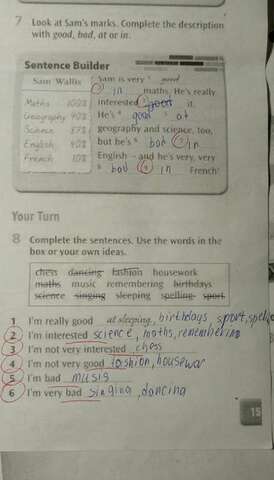 7 Look at Sam's marks. Complete the description
with good, bad, at or in.
Sentence Builder
Sam Wallis
Maths 100%
Geography 90%
Science 87%
English 40%
French 10%
Sam is very 1 good
2 in maths. He's really
interested 3 good it.
He's 4 good 5 at
geography and science, too,
but he's 6 bad 7 in
English – and he's very, very
8 bad 9 in French!
Your Turn
8 Complete the sentences. Use the words in the
box or your own ideas.
chess dancing fashion housework
maths music remembering birthdays
science singing sleeping spelling sport
1 I'm really good at sleeping, birthdays sport,
2 I'm interested science, maths, remembering
3 I'm not very interested chess
4 I'm not very good fashion,
5 I'm bad musig
6 I'm very bad singing, dancing
15